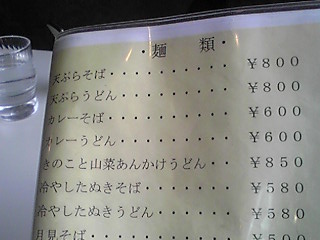 ・麺 類・
天ぷらそば・・・・・・・・・￥８００
天ぷらうどん・・・・・・・・￥８００
カレーそば・・・・・・・・・￥６００
カレーうどん・・・・・・・・￥６００
きのこと山菜あんかけうどん・・￥８５０
冷やしたぬきそば・・・・・・￥５８０
冷やしたぬきうどん・・・・・￥５８０
月見そば・・・・・・・・・・￥５００